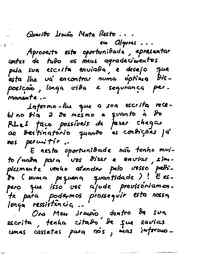 Querido Irmão Mata Resto...
em Algures...
Aproveito esta oportunidade, apresentar
antes de tudo os meus agradecimentos
pela sua escrita enviada, e desejo que
esta lhe vá encontrar numa óptima Dis-
posição, longa vida e segurança per-
manente...
Informo-lhe que a sua escrita rece-
bi no dia 2 do mesmo e quanto à do
será possível de fazer chegar
ao destinatário quando as condições já
nos permitir.
E nesta oportunidade não tenho mui-
to/nada para vos dizer e enviar, sim-
plesmente venho atender pelo vosso pedi-
do (numa pequena quantidade)! Es-
pero que isso vos ajude provisoriamen-
te para podermos prosseguir esta nossa
longa resistência...
Ora Meu Irmão dentro da sua
escrita, tenho citado de que enviou
umas cassetes para nós, mas informo-